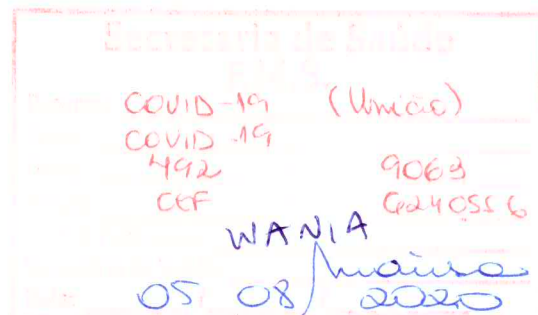 Secretaria de Saúde
F.M.S.
COVID-19 (União)
COVID-19
492 9069
CEF 6240556
WANIA
05 08 2020